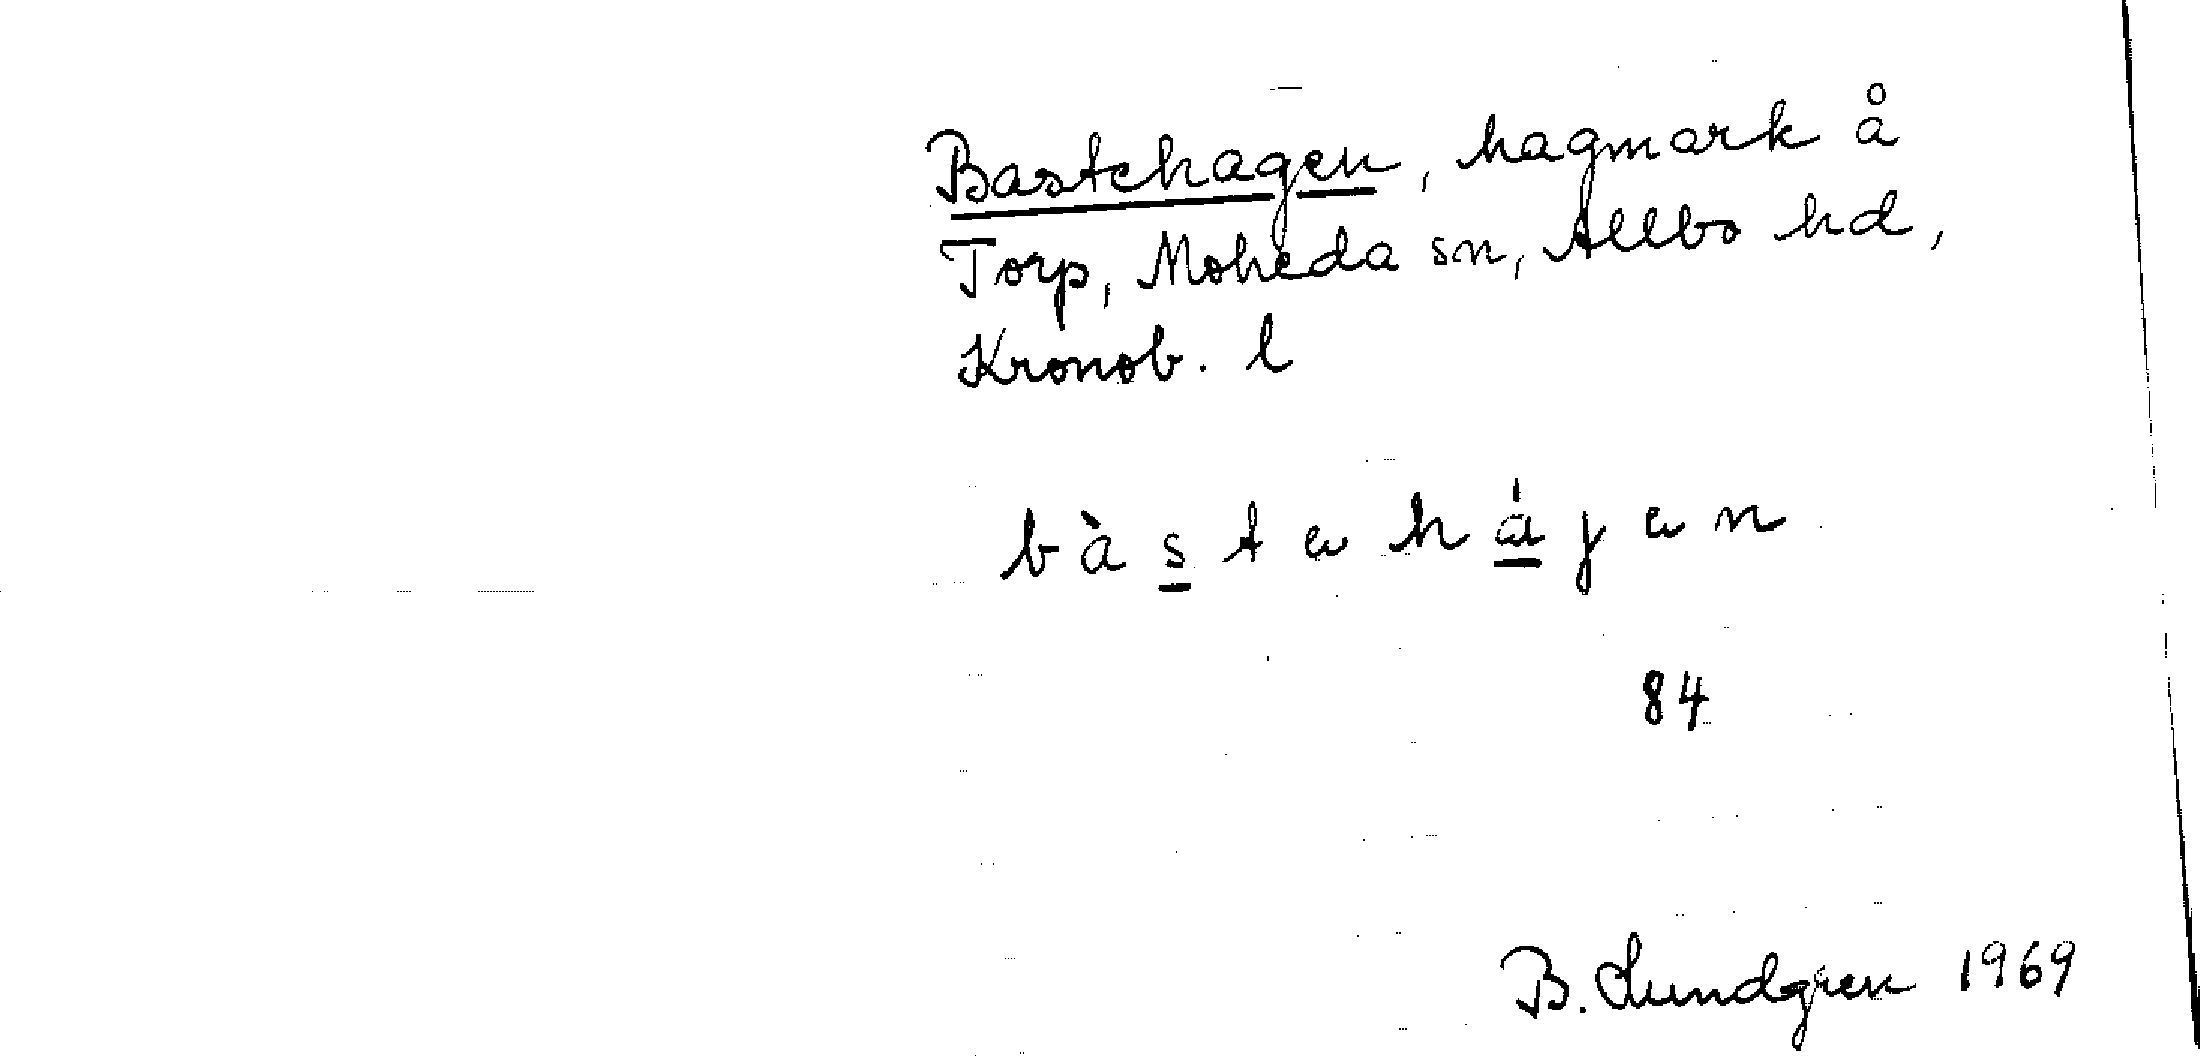 Bastehagen, hagmark å
Torp, Moheda sn, Allbo hd,
Kronob. l
bàstəhájən
84
B. Lundgren 1969